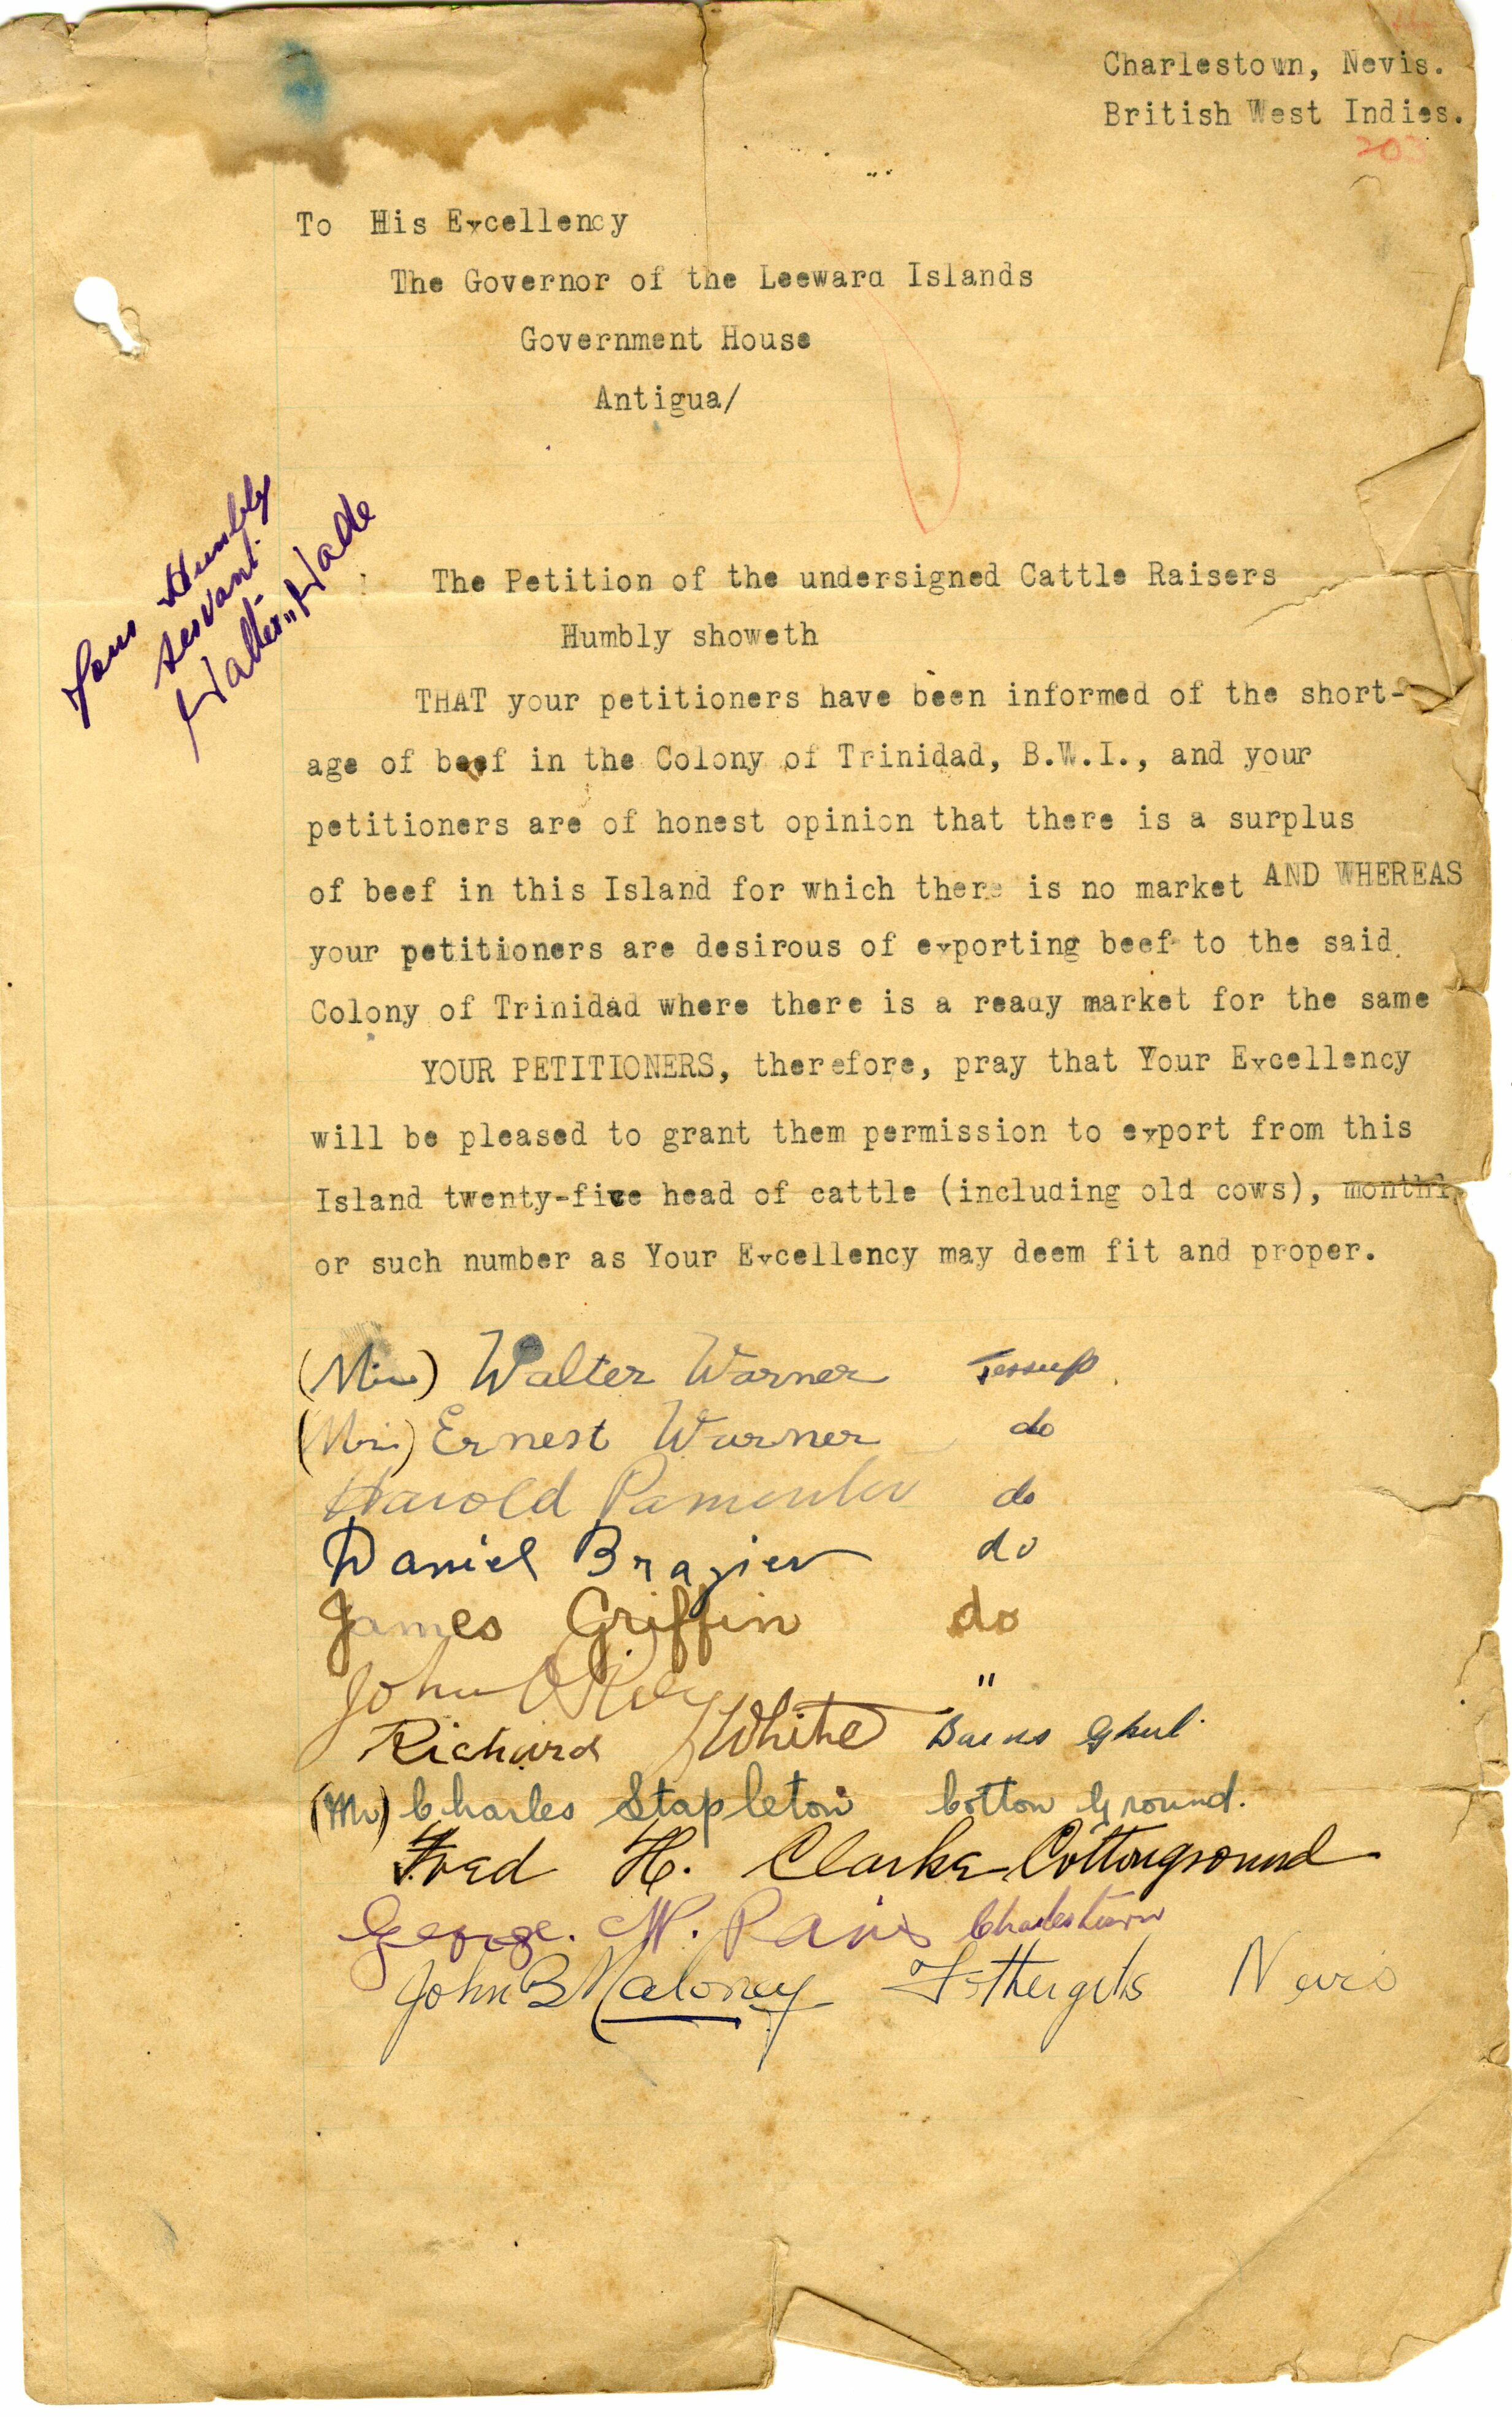 Charlestown, Nevis.
British West Indies.
203
To His Excellency
The Governor of the Leeward Islands
Government House
Antigua/
Yours Humbly
servant.
Walter
The Petition of the undersigned Cattle Raisers
Humbly showeth
THAT your petitioners have been informed of the short-
age of beef in the Colony of Trinidad, B.W.I., and your
petitioners are of honest opinion that there is a surplus
of beef in this Island for which there is no market AND WHEREAS
your petitioners are desirous of exporting beef to the said
Colony of Trinidad where there is a ready market for the same
YOUR PETITIONERS, therefore, pray that Your Excellency
will be pleased to grant them permission to export from this
Island twenty-five head of cattle (including old cows), monthly
or such number as Your Excellency may deem fit and proper.
Walter Warner Jessup
Ernest Warner do
Harold do
Daniel Brazier do
James Griffin do
John "
Richard White
(Mr) Charles Stapleton Cotton Ground.
Fred H. Clarke Cottonground
George. M. Charlestown
John B Maloney Fothergills Nevis